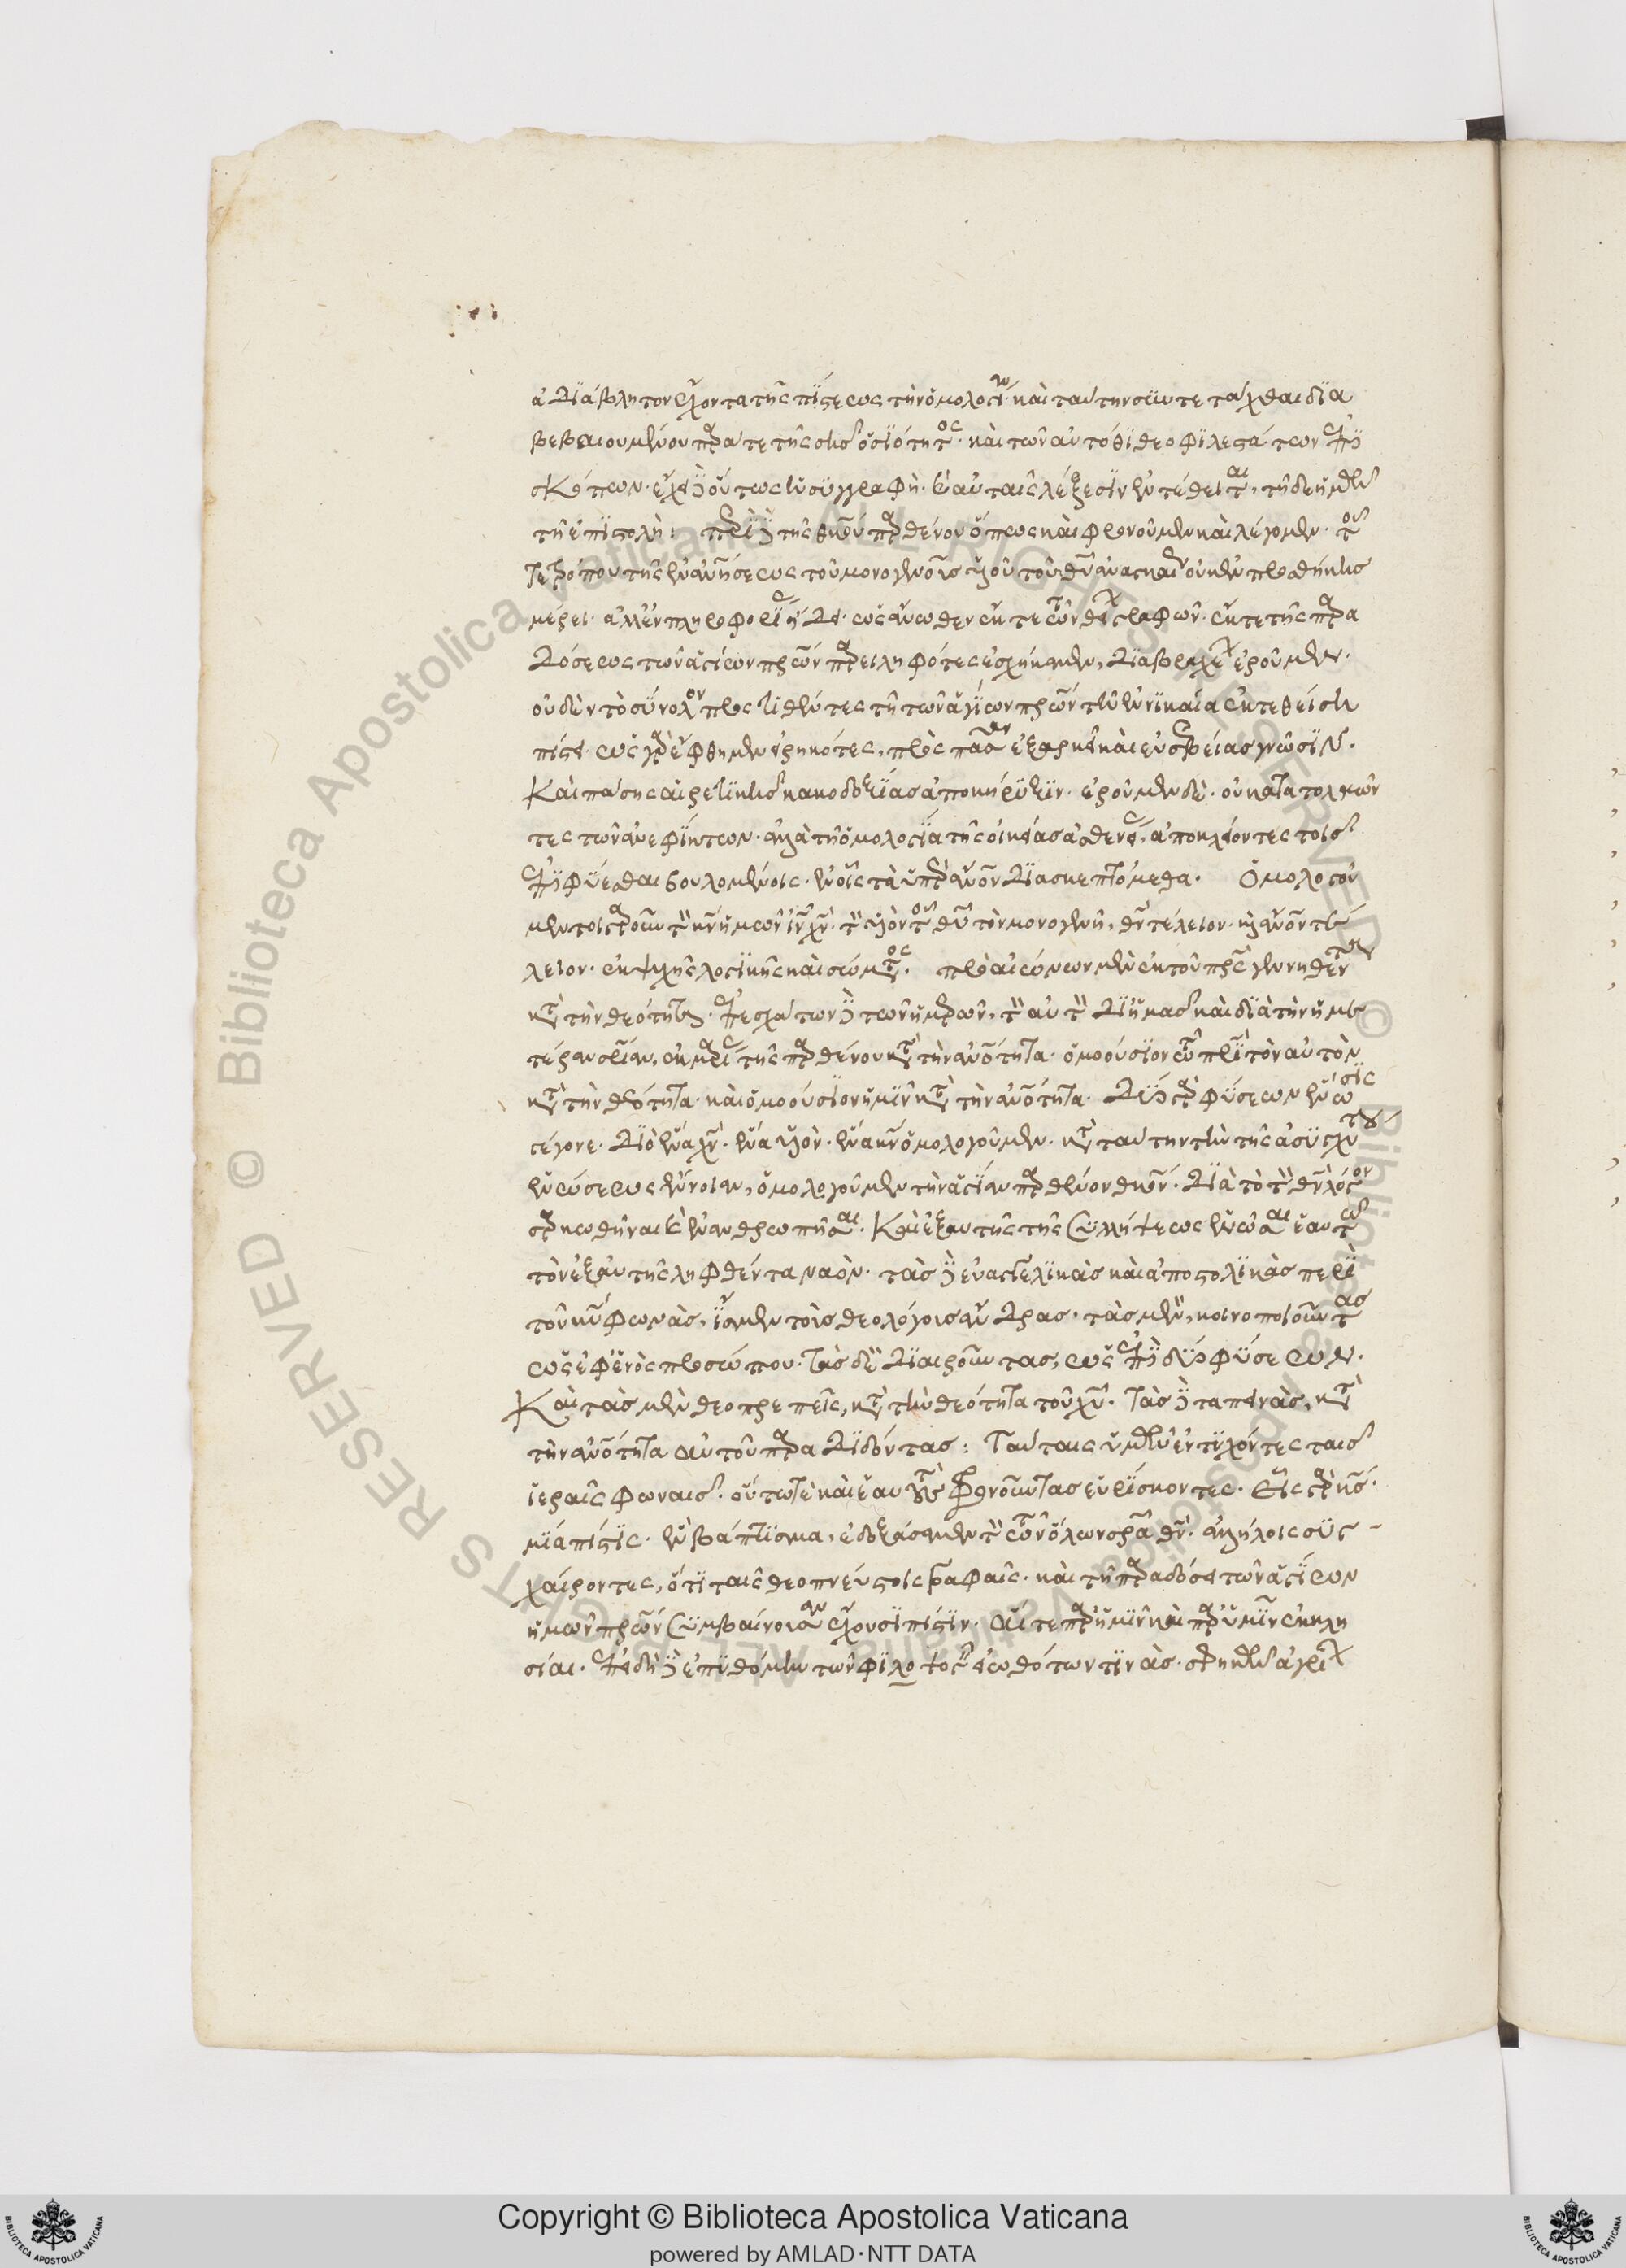 ἀδιάβλητον ἔχοντα τῆς πίστεως τὴν ὁμολογίαν καὶ ταύτην συντετάχθαι δια
βεβαιουμένου παρά τε τῆς σῆς ὁσιότητος. καὶ τῶν αὐτόθι θεοφιλεστάτων ἐπι
σκόπων. ἔχει δὲ οὕτως ἡ συγγραφὴ. καὶ αὐταῖς λέξεσιν ἐντέθειται, τῇδε ἡμῶν
τῇ ἐπιστολῇ: περὶ δὲ τῆς θκου παρθένου ὅπως καὶ φρονοῦμεν καὶ λέγομεν. τοῦ
τε τρόπου τῆς ἐνανήσεως τοῦ μονογενοῦς υἱοῦ τοῦ θυ ἀναγκαίως οὐκ ἐν προσθήκης
μέρει. ἀλλ' ἐν πληροφορίας εἴδει. ὡς ἄνωθεν ἔκ τε τῶν θείων γραφῶν. ἔκ τε τῆς παρα
δόσεως τῶν ἁγίων πρων παρειληφότες ἐσχήκαμεν, διὰ βραχέων ἐροῦμεν.
οὐδὲν τὸ σύνολον προστιθέντες τῇ τῶν ἁγίων πρων τῇ ἐν νικαία ἐκτεθείση
πίστει. ὡς γὰρ ἔφθημεν εἰρηκότες, πρὸς πᾶσαν ἐξαρκεῖ καὶ εὐσεβείας γνῶσιν.
Καὶ πάσης αἱρετικῆς κακοδοξίας ἀποκήρυξιν. ἐροῦμεν δὲ. οὐ κατατολμῶν
τες τῶν ἀνεφίκτων. ἀλλὰ τῇ ὁμολογία τῆς οἰκείας ἀσθενείας, ἀποκλείοντες τοῖς
ἐπιφύεσθαι βουλομένοις. ἐν οἷς τὰ ὑπὲρ ἄνον διασκεπτόμεθα. Ὁμολογοῦ
μεν τοιγαροῦν τὸν κν ἡμῶν ἰν χν. τὸν υἱὸν τοῦ θυ τὸν μονογενῆ, θν τέλειον. καὶ ἄνον τέ
λειον. ἐκ ψυχῆς λογικῆς καὶ σώματος. πρὸ αἰώνων μὲν ἐκ τοῦ πρς γεννηθέντα
κατὰ τὴν θεότητα. ἐπ' ἐσχάτων δὲ τῶν ἡμερῶν, τὸν αὐτὸν δι' ἡμᾶς καὶ διὰ τὴν ἡμε
τέραν σρίαν, ἐκ μαρίας τῆς παρθένου κατὰ τὴν ἀνότητα. ὁμοούσιον τῷ πρὶ τὸν αὐτὸν
κατὰ τὴν θεότητα. καὶ ὁμοούσιον ἡμῖν κατὰ τὴν ἀνότητα. δύο γὰρ φύσεων ἕνωσις
γέγονε. διὸ ἕνα χν. ἕνα υἱὸν. ἕνα κν ὁμολογοῦμεν. κατὰ ταύτην τὴν τῆς ἀσυγχύτου
ἑνώσεως ἔννοιαν, ὁμολογοῦμεν τὴν ἁγίαν παρθένον θκον. διὰ τὸ τὸν θν λόγον
σαρκωθῆναι καὶ ἐνανθρωπῆσαι. Καὶ ἐξ αὐτῆς τῆς συλλήψεως ἑνῶσαι ἑαυτῷ
τὸν ἐξ αὐτῆς ληφθέντα ναὸν. τὰς δὲ εὐαγγελικὰς καὶ ἀποστολικὰς περὶ
τοῦ κυ φωνὰς, ἴσμεν τοὺς θεολόγους ἄνδρας. τὰς μὲν, κοινοποιοῦντας
ὡς ἐφ' ἑνὸς προσώπου. τὰς δὲ διαιροῦντας, ὡς ἐπὶ δύο φύσεων.
Καὶ τὰς μὲν θεοπρεπεῖς, κατὰ τὴν θεότητα τοῦ χυ. τὰς δὲ ταπεινὰς, κατὰ
τὴν ἀνότητα αὐτοῦ παραδιδόντας: Ταύταις ὑμῶν ἐντυχόντες ταῖς
ἱεραῖς φωναῖς. οὕτω τὲ καὶ ἑαυτοὺς φρονοῦντας εὑρίσκοντες. Εἷς γὰρ κς.
μία πίστις. ἓν βάπτισμα, ἐδοξάσαμεν τὸν τῶν ὅλων σρα θν. ἀλλήλοις συγ-
χαίροντες, ὅτι ταῖς θεοπνεύστοις γραφαῖς. καὶ τῇ παραδόσει τῶν ἁγίων
ἡμῶν πρων συμβαίνουσαν ἔχουσι πίστιν. αἵ τε παρ' ἡμῖν καὶ παρ' ὑμῖν ἐκκλη
σίαι. ἐπειδὴ δὲ ἐπυθόμην τῶν φιλοψογεῖν εἰωθότων τινὰς. σφηκῶν ἀγρίων